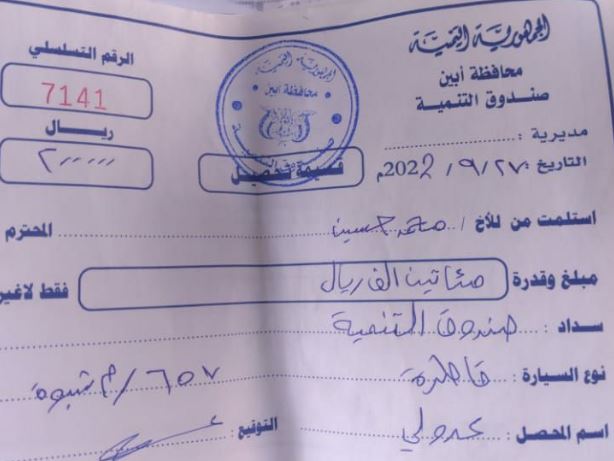 الجمهورية اليمنية
محافظة أبين
صندوق التنمية
مديرية :
الرقم التسلسلي
7141
ريال
٢٠٠٠٠٠
الجمهورية اليمنية
محافظة أبين
قسيمة تحصيل
التاريخ : ٢٧ / ٩ / 2022م
استلمت من للأخ / محمد حسين المحترم
مبلغ وقدرة مئاتين الف ريال فقط لاغير
سداد : صندوق التنمية
نوع السيارة : قاطرة ٦٥٧ / م شبوة
اسم المحصل : التوقيع :